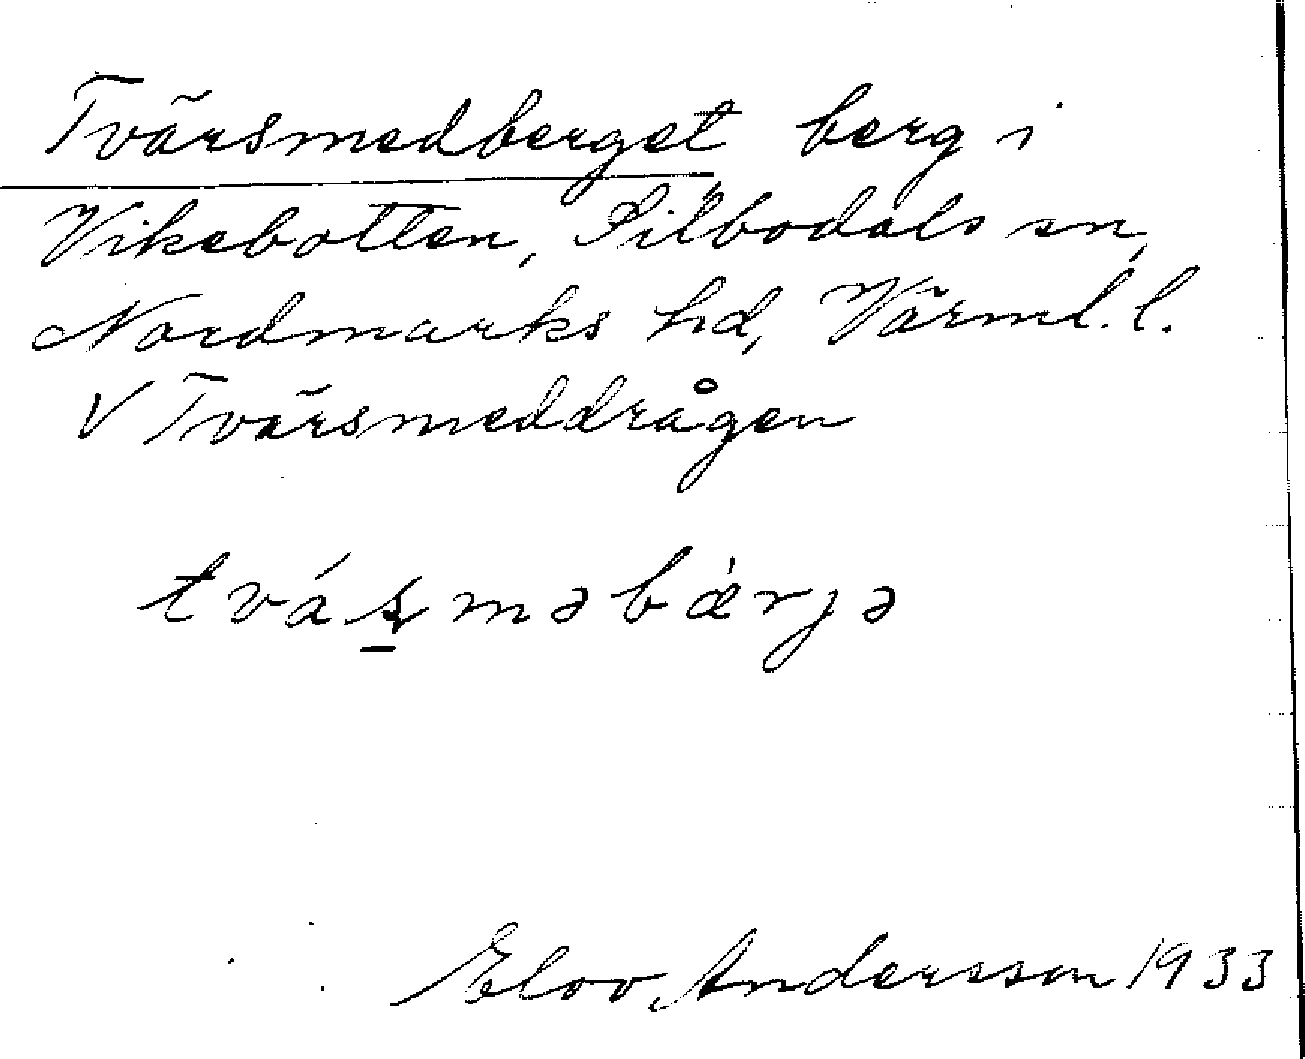 Tvärsmedberget berg i
Vikebotten, Silbodals sn,
Nordmarks hd, Värml. l.
V Tvärsmeddrågen
tvásməbǽrjə
Elov Andersson 1933